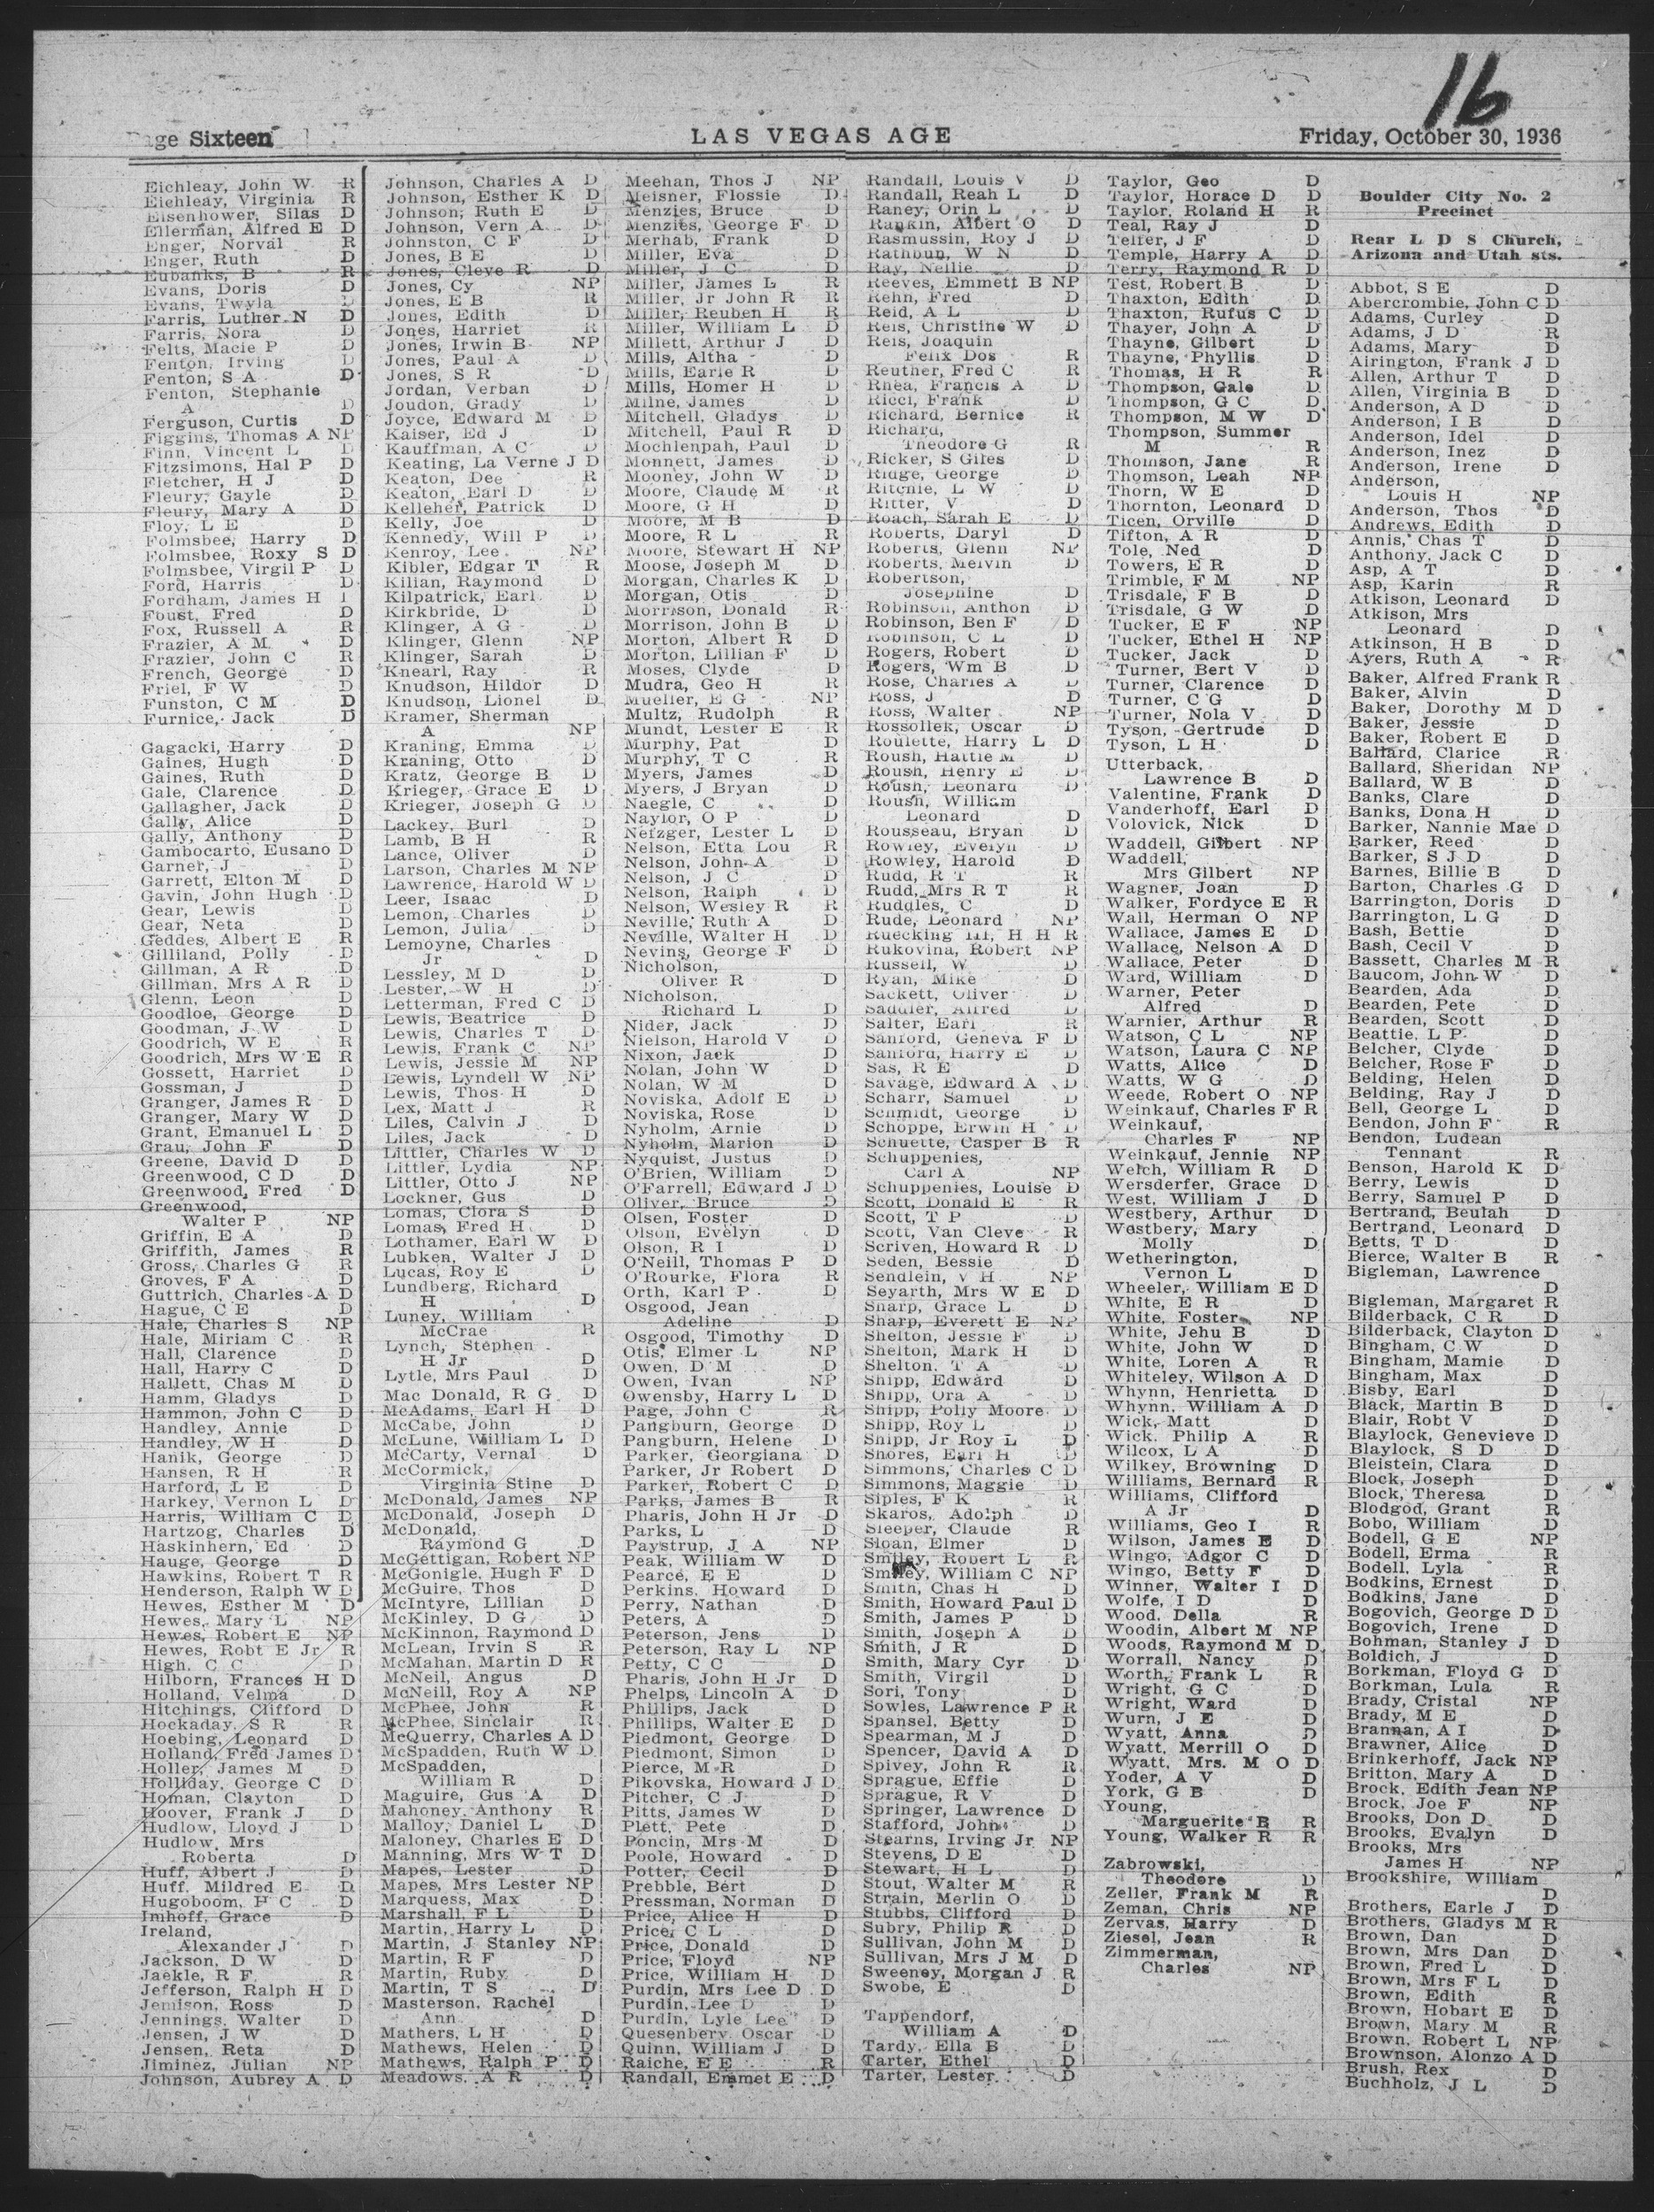 16
Page Sixteen
LAS VEGAS AGE
Friday, October 30, 1936
Eichleay, John W R
Eichleay, Virginia R
Eisenhower, Silas D
Ellerman, Alfred E D
Enger, Norval R
Enger, Ruth D
Eubanks, B R
Evans, Doris D
Evans, Twyla D
Farris, Luther N D
Farris, Nora D
Felts, Macie P D
Fenton, Irving D
Fenton, S A D
Fenton, Stephanie
A D
Ferguson, Curtis D
Figgins, Thomas A NP
Finn, Vincent L D
Fitzsimons, Hal P D
Fletcher, H J D
Fleury, Gayle D
Fleury, Mary A D
Floy, L E D
Folmsbee, Harry D
Folmsbee, Roxy S D
Folmsbee, Virgil P D
Ford, Harris D
Fordham, James H
Foust, Fred D
Fox, Russell A R
Frazier, A M D
Frazier, John C R
French, George D
Friel, F W D
Funston, C M D
Furnice, Jack D
Gagacki, Harry D
Gaines, Hugh D
Gaines, Ruth D
Gale, Clarence D
Gallagher, Jack D
Gally, Alice D
Gally, Anthony D
Gambocarto, Eusano D
Garner, J D
Garrett, Elton M D
Gavin, John Hugh D
Gear, Lewis D
Gear, Neta D
Geddes, Albert E R
Gilliland, Polly D
Gillman, A R D
Gillman, Mrs A R D
Glenn, Leon D
Goodloe, George D
Goodman, J W D
Goodrich, W E R
Goodrich, Mrs W E R
Gossett, Harriet D
Gossman, J D
Granger, James R D
Granger, Mary W D
Grant, Emanuel L D
Grau, John F D
Greene, David D D
Greenwood, C D D
Greenwood, Fred D
Greenwood,
Walter P NP
Griffin, E A D
Griffith, James R
Gross, Charles G R
Groves, F A D
Guttrich, Charles A D
Hague, C E D
Hale, Charles S NP
Hale, Miriam C R
Hall, Clarence D
Hall, Harry C D
Hallett, Chas M D
Hamm, Gladys D
Hammon, John C D
Handley, Annie D
Handley, W H D
Hanik, George D
Hansen, R H R
Harford, L E D
Harkey, Vernon L D
Harris, William C D
Hartzog, Charles D
Haskinhern, Ed D
Hauge, George D
Hawkins, Robert T R
Henderson, Ralph W D
Hewes, Esther M D
Hewes, Mary L NP
Hewes, Robert E NP
Hewes, Robt E Jr R
High, C C D
Hilborn, Frances H D
Holland, Velma D
Hitchings, Clifford D
Hockaday, S R R
Hoebing, Leonard D
Holland, Fred James D
Holler, James M D
Holliday, George C D
Homan, Clayton D
Hoover, Frank J D
Hudlow, Lloyd J D
Hudlow, Mrs
Roberta D
Huff, Albert J D
Huff, Mildred E D
Hugoboom, H C D
Imhoff, Grace D
Ireland,
Alexander J D
Jackson, D W D
Jaekle, R F R
Jefferson, Ralph H D
Jemison, Ross D
Jennings, Walter D
Jensen, J W D
Jensen, Reta D
Jiminez, Julian NP
Johnson, Aubrey A D
Johnson, Charles A D
Johnson, Esther K D
Johnson, Ruth E D
Johnson, Vern A D
Johnston, C F D
Jones, B E D
Jones, Cleve R D
Jones, Cy NP
Jones, E B R
Jones, Edith D
Jones, Harriet R
Jones, Irwin B NP
Jones, Paul A D
Jones, S R D
Jordan, Verban D
Joudon, Grady D
Joyce, Edward M D
Kaiser, Ed J D
Kauffman, A C D
Keating, La Verne J D
Keaton, Dee R
Keaton, Earl D D
Kelleher, Patrick D
Kelly, Joe D
Kennedy, Will P D
Kenroy, Lee NP
Kibler, Edgar T R
Kilian, Raymond D
Kilpatrick, Earl D
Kirkbride, D D
Klinger, A G D
Klinger, Glenn NP
Klinger, Sarah D
Knearl, Ray R
Knudson, Hildor D
Knudson, Lionel D
Kramer, Sherman
A NP
Kraning, Emma D
Kraning, Otto D
Kratz, George B D
Krieger, Grace E D
Krieger, Joseph G D
Lackey, Burl D
Lamb, B H R
Lance, Oliver D
Larson, Charles M NP
Lawrence, Harold W D
Leer, Isaac D
Lemon, Charles D
Lemon, Julia D
Lemoyne, Charles
Jr D
Lessley, M D D
Lester, W H D
Letterman, Fred C D
Lewis, Beatrice D
Lewis, Charles T D
Lewis, Frank C NP
Lewis, Jessie M NP
Lewis, Lyndell W NP
Lewis, Thos H D
Lex, Matt J R
Liles, Calvin J D
Liles, Jack D
Littler, Charles W D
Littler, Lydia NP
Littler, Otto J NP
Lockner, Gus D
Lomas, Clora S D
Lomas, Fred H D
Lothamer, Earl W D
Lubken, Walter J D
Lucas, Roy E D
Lundberg, Richard
H D
Luney, William
McCrae R
Lynch, Stephen
H Jr D
Lytle, Mrs Paul D
Mac Donald, R G D
McAdams, Earl H D
McCabe, John D
McLune, William L D
McCarty, Vernal D
McCormick,
Virginia Stine D
McDonald, James NP
McDonald, Joseph D
McDonald,
Raymond G D
McGettigan, Robert NP
McGonigle, Hugh F D
McGuire, Thos D
McIntyre, Lillian D
McKinley, D G D
McKinnon, Raymond D
McLean, Irvin S R
McMahan, Martin D R
McNeil, Angus D
McNeill, Roy A NP
McPhee, John R
McPhee, Sinclair R
McQuerry, Charles A D
McSpadden, Ruth W D
McSpadden,
William R D
Maguire, Gus A D
Mahoney, Anthony R
Malloy, Daniel L D
Maloney, Charles E D
Manning, Mrs W T D
Mapes, Lester D
Mapes, Mrs Lester NP
Marquess, Max D
Marshall, F L D
Martin, Harry L D
Martin, J Stanley NP
Martin, R F D
Martin, Ruby D
Martin, T S D
Masterson, Rachel
Ann D
Mathers, L H D
Mathews, Helen D
Mathews, Ralph P D
Meadows, A R D
Meehan, Thos J NP
Meisner, Flossie D
Menzies, Bruce D
Menzies, George F D
Merhab, Frank D
Miller, Eva D
Miller, J C D
Miller, James L R
Miller, Jr John R R
Miller, Reuben H R
Miller, William L D
Millett, Arthur J D
Mills, Altha D
Mills, Earle R D
Mills, Homer H D
Milne, James D
Mitchell, Gladys D
Mitchell, Paul R D
Mochlenpah, Paul D
Monnett, James D
Mooney, John W D
Moore, Claude M R
Moore, G H D
Moore, M B D
Moore, R L R
Moore, Stewart H NP
Moose, Joseph M D
Morgan, Charles K D
Morgan, Otis D
Morrison, Donald R
Morrison, John B D
Morton, Albert R D
Morton, Lillian F D
Moses, Clyde D
Mudra, Geo H R
Mueller, E G NP
Multz, Rudolph R
Mundt, Lester E R
Murphy, Pat D
Murphy, T C R
Myers, James D
Myers, J Bryan D
Naegle, C D
Naylor, O P D
Nefzger, Lester L D
Nelson, Etta Lou R
Nelson, John A D
Nelson, J C D
Nelson, Ralph D
Nelson, Wesley R R
Neville, Ruth A D
Neville, Walter H D
Nevins, George F D
Nicholson,
Oliver R D
Nicholson,
Richard L D
Nider, Jack D
Nielson, Harold V D
Nixon, Jack D
Nolan, John W D
Nolan, W M D
Noviska, Adolf E D
Noviska, Rose D
Nyholm, Arnie D
Nyholm, Marion D
Nyquist, Justus D
O'Brien, William D
O'Farrell, Edward J D
Oliver, Bruce D
Olsen, Foster D
Olson, Evelyn D
Olson, R I D
O'Neill, Thomas P D
O'Rourke, Flora R
Orth, Karl P D
Osgood, Jean
Adeline D
Osgood, Timothy D
Otis, Elmer L NP
Owen, D M D
Owen, Ivan NP
Owensby, Harry L D
Page, John C R
Pangburn, George D
Pangburn, Helene D
Parker, Georgiana D
Parker, Jr Robert D
Parker, Robert C D
Parks, James B R
Pharis, John H Jr D
Parks, L D
Paystrup, J A NP
Peak, William W D
Pearce, E E D
Perkins, Howard D
Perry, Nathan D
Peters, A D
Peterson, Jens D
Peterson, Ray L NP
Petty, C C D
Pharis, John H Jr D
Phelps, Lincoln A D
Phillips, Jack D
Phillips, Walter E D
Piedmont, George D
Piedmont, Simon D
Pierce, M R D
Pikovska, Howard J D
Pitcher, C J D
Pitts, James W D
Plett, Pete D
Poncin, Mrs M D
Poole, Howard D
Potter, Cecil D
Prebble, Bert D
Pressman, Norman D
Price, Alice H D
Price, C L D
Price, Donald D
Price, Floyd NP
Price, William H D
Purdin, Mrs Lee D D
Purdin, Lee D D
Purdin, Lyle Lee D
Quesenbery, Oscar D
Quinn, William J D
Raiche, E E R
Randall, Emmet E D
Randall, Louis V D
Randall, Reah L D
Raney, Orin L D
Rankin, Albert O D
Rasmussin, Roy J D
Rathbun, W N D
Ray, Nellie D
Reeves, Emmett B NP
Rehn, Fred D
Reid, A L D
Reis, Christine W D
Reis, Joaquin
Felix Dos R
Reuther, Fred C R
Rhea, Francis A D
Ricci, Frank D
Richard, Bernice R
Richard,
Theodore G R
Ricker, S Giles D
Ridge, George D
Ritchie, L W D
Ritter, V D
Roach, Sarah E D
Roberts, Daryl D
Roberts, Glenn NP
Roberts, Melvin D
Robertson,
Josephine D
Robinson, Anthon D
Robinson, Ben F D
Robinson, C L D
Rogers, Robert D
Rogers, Wm B D
Rose, Charles A D
Ross, J D
Ross, Walter NP
Rossollek, Oscar D
Roulette, Harry L D
Roush, Hattie M D
Roush, Henry E D
Roush, Leonard D
Roush, William
Leonard D
Rousseau, Bryan D
Rowley, Evelyn D
Rowley, Harold D
Rudd, R T R
Rudd, Mrs R T R
Ruddles, C D
Rude, Leonard NP
Ruecking III, H H R
Rukovina, Robert NP
Russell, W D
Ryan, Mike D
Sackett, Oliver D
Saddler, Alfred D
Salter, Earl R
Sanford, Geneva F D
Sanford, Harry E D
Sas, R E D
Savage, Edward A D
Scharr, Samuel D
Schmidt, George D
Schoppe, Erwin H D
Schuette, Casper B R
Schuppenies,
Carl A NP
Schuppenies, Louise D
Scott, Donald E R
Scott, T P D
Scott, Van Cleve R
Scriven, Howard R D
Seden, Bessie D
Sendlein, V H NP
Seyarth, Mrs W E D
Sharp, Grace L D
Sharp, Everett E NP
Shelton, Jessie F D
Shelton, Mark H D
Shelton, T A D
Shipp, Edward D
Shipp, Ora A D
Shipp, Polly Moore D
Shipp, Roy L D
Shipp, Jr Roy L D
Shores, Earl H D
Simmons, Charles C D
Simmons, Maggie D
Siples, F K R
Skaros, Adolph D
Sleeper, Claude R
Sloan, Elmer D
Smiley, Robert L R
Smiley, William C NP
Smith, Chas H D
Smith, Howard Paul D
Smith, James P D
Smith, Joseph A D
Smith, J R D
Smith, Mary Cyr D
Smith, Virgil D
Sori, Tony D
Sowles, Lawrence P R
Spansel, Betty D
Spearman, M J D
Spencer, David A D
Spivey, John R R
Sprague, Effie D
Sprague, R V D
Springer, Lawrence D
Stafford, John D
Stearns, Irving Jr NP
Stevens, D E D
Stewart, H L D
Stout, Walter M R
Strain, Merlin O D
Stubbs, Clifford D
Subry, Philip R D
Sullivan, John M D
Sullivan, Mrs J M D
Sweeney, Morgan J R
Swobe, E D
Tappendorf,
William A D
Tardy, Ella B D
Tarter, Ethel D
Tarter, Lester D
Taylor, Geo D
Taylor, Horace D D
Taylor, Roland H R
Teal, Ray J D
Telfer, J F D
Temple, Harry A D
Terry, Raymond R D
Test, Robert B D
Thaxton, Edith D
Thaxton, Rufus C D
Thayer, John A D
Thayne, Gilbert D
Thayne, Phyllis D
Thomas, H R R
Thompson, Gale D
Thompson, G C D
Thompson, M W D
Thompson, Summer
M R
Thomson, Jane R
Thomson, Leah NP
Thorn, W E D
Thornton, Leonard D
Ticen, Orville D
Tifton, A R D
Tole, Ned D
Towers, E R D
Trimble, F M NP
Trisdale, F B D
Trisdale, G W D
Tucker, E F NP
Tucker, Ethel H NP
Tucker, Jack D
Turner, Bert V D
Turner, Clarence D
Turner, C G D
Turner, Nola V D
Tyson, Gertrude D
Tyson, L H D
Utterback,
Lawrence B D
Valentine, Frank D
Vanderhoff, Earl D
Volovick, Nick D
Waddell, Gilbert NP
Waddell,
Mrs Gilbert NP
Wagner, Joan D
Walker, Fordyce E R
Wall, Herman O NP
Wallace, James E D
Wallace, Nelson A D
Wallace, Peter D
Ward, William D
Warner, Peter
Alfred D
Warnier, Arthur R
Watson, C L NP
Watson, Laura C NP
Watts, Alice D
Watts, W G D
Weede, Robert O NP
Weinkauf, Charles F R
Weinkauf,
Charles F NP
Weinkauf, Jennie NP
Welch, William R D
Wersderfer, Grace D
West, William J D
Westbery, Arthur D
Westbery, Mary
Molly D
Wetherington,
Vernon L D
Wheeler, William E D
White, E R D
White, Foster NP
White, Jehu B D
White, John W D
White, Loren A R
Whiteley, Wilson A D
Whynn, Henrietta D
Whynn, William A D
Wick, Matt D
Wick, Philip A R
Wilcox, L A D
Wilkey, Browning D
Williams, Bernard R
Williams, Clifford
A Jr D
Williams, Geo I R
Wilson, James E D
Wingo, Adgor C D
Wingo, Betty F D
Winner, Walter I D
Wolfe, I D D
Wood, Della R
Woodin, Albert M NP
Woods, Raymond M D
Worrall, Nancy D
Worth, Frank L R
Wright, G C D
Wright, Ward D
Wurn, J E D
Wyatt, Anna D
Wyatt, Merrill O D
Wyatt, Mrs. M O D
Yoder, A V D
York, G B D
Young,
Marguerite B R
Young, Walker R R
Zabrowski,
Theodore D
Zeller, Frank M R
Zeman, Chris NP
Zervas, Harry D
Ziesel, Jean R
Zimmerman,
Charles NP
Boulder City No. 2
Precinct
Rear L D S Church,
Arizona and Utah sts.
Abbot, S E D
Abercrombie, John C D
Adams, Curley D
Adams, J D R
Adams, Mary D
Airington, Frank J D
Allen, Arthur T D
Allen, Virginia B D
Anderson, A D D
Anderson, I B D
Anderson, Idel D
Anderson, Inez D
Anderson, Irene D
Anderson,
Louis H NP
Anderson, Thos D
Andrews, Edith D
Annis, Chas T D
Anthony, Jack C D
Asp, A T D
Asp, Karin R
Atkison, Leonard D
Atkison, Mrs
Leonard D
Atkinson, H B D
Ayers, Ruth A R
Baker, Alfred Frank R
Baker, Alvin D
Baker, Dorothy M D
Baker, Jessie D
Baker, Robert E D
Ballard, Clarice R
Ballard, Sheridan NP
Ballard, W B D
Banks, Clare D
Banks, Dona H D
Barker, Nannie Mae D
Barker, Reed D
Barker, S J D D
Barnes, Billie B D
Barton, Charles G D
Barrington, Doris D
Barrington, L G D
Bash, Bettie D
Bash, Cecil V D
Bassett, Charles M R
Baucom, John W D
Bearden, Ada D
Bearden, Pete D
Bearden, Scott D
Beattie, L P D
Belcher, Clyde D
Belcher, Rose F D
Belding, Helen D
Belding, Ray J D
Bell, George L D
Bendon, John F R
Bendon, Ludean
Tennant R
Benson, Harold K D
Berry, Lewis D
Berry, Samuel P D
Bertrand, Beulah D
Bertrand, Leonard D
Betts, T D D
Bierce, Walter B R
Bigleman, Lawrence
D
Bigleman, Margaret R
Bilderback, C R D
Bilderback, Clayton D
Bingham, C W D
Bingham, Mamie D
Bingham, Max D
Bisby, Earl D
Black, Martin B D
Blair, Robt V D
Blaylock, Genevieve D
Blaylock, S D D
Bleistein, Clara D
Block, Joseph D
Block, Theresa D
Blodgod, Grant R
Bobo, William D
Bodell, G E NP
Bodell, Erma R
Bodell, Lyla R
Bodkins, Ernest D
Bodkins, Jane D
Bogovich, George D D
Bogovich, Irene D
Bohman, Stanley J D
Boldich, J D
Borkman, Floyd G D
Borkman, Lula R
Brady, Cristal NP
Brady, M E D
Brannan, A I D
Brawner, Alice D
Brinkerhoff, Jack NP
Britton, Mary A D
Brock, Edith Jean NP
Brock, Joe F NP
Brooks, Don D D
Brooks, Evalyn D
Brooks, Mrs
James H NP
Brookshire, William
D
Brothers, Earle J D
Brothers, Gladys M R
Brown, Dan D
Brown, Mrs Dan D
Brown, Fred L D
Brown, Mrs F L D
Brown, Edith R
Brown, Hobart E D
Brown, Mary M R
Brown, Robert L NP
Brownson, Alonzo A D
Brush, Rex D
Buchholz, J L D